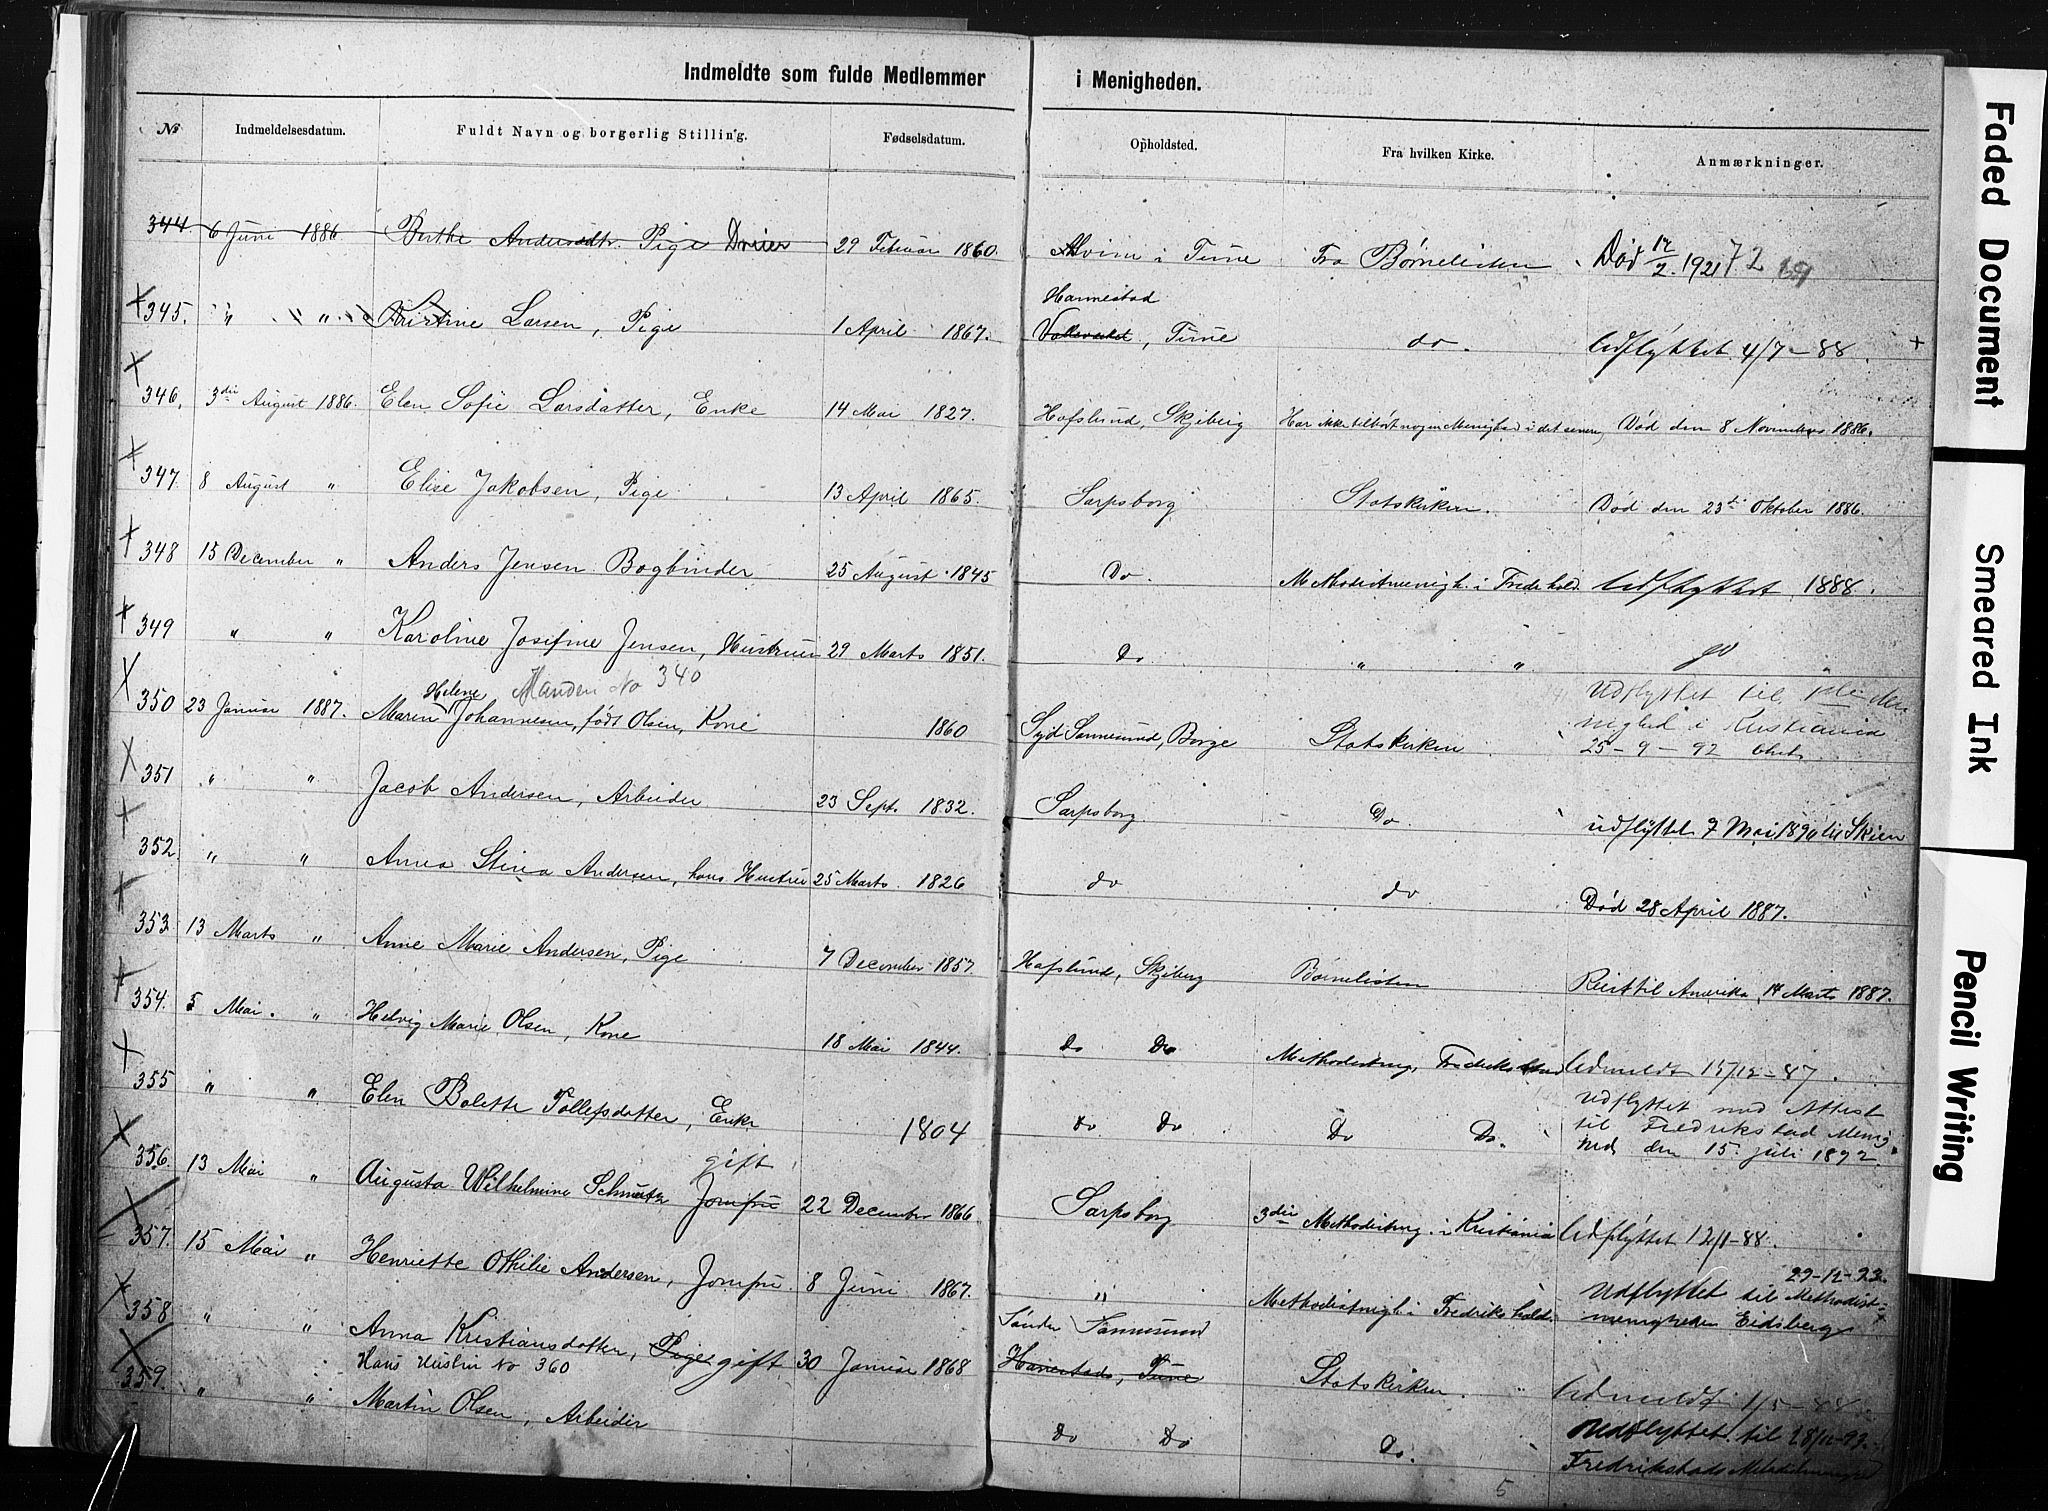 Indmeldte som fulde Medlemmer i Menigheden.
№ Indmeldelsesdatum. Fuldt Navn og borgerlig Stilling. Fødselsdatum. Opholdsted. Fra hvilken Kirke. Anmærkninger.
344. 6 Juni 1886. Berthe Andersdtr. Pige 29 Februar 1860. Alvim i Tune Fra Børnelisten Død 17/2. 1921
Hannestad
345. " " Kristine Larsen, Pige 1 April 1867. Tune do. Udflyttet 4/7-88.
346. 3die August 1886. Elen Sofie Larsdatter, Enke 14 Mai 1827. Hafslund, Skjeberg Har ikke tilhørt nogen Menighed i det senere, Død den 8 November 1886.
347. 8 August " Elise Jakobsen, Pige 13 April 1865. Sarpsborg Statskirken. Død den 23de Oktober 1886.
348 15 December " Anders Jensen Bogbinder 25 August 1845 Do. Methodistmenigh. i Fredr.hald. Udflyttet 1888.
349 " " Karoline Josefine Jensen, Hustru 29 Marts 1851. Do " " do
Manden No 340
350 23 Januar 1887. Maren Helene Johannesen, født Olsen, Kone 1860 Syd Sannesund, Borge Statskirken Udflyttet til 1ste Me
nighed i Kristiania
25-9-92
351 " " Jacob Andersen, Arbeider 23 Sept. 1832. Sarpsborg Do Udflyttet 7 Mai 1890 til Skien
352. " " Anna Stina Andersen, hans Hustru 25 Marts. 1826 do do Død 28 April 1887.
353 13 Marts " Anne Marie Andersen, Pige 7 December 1857. Hafslund, Skjeberg Børnelisten Reist til Amerika, 14 Marts 1887.
354. 5 Mai. " Hedvig Marie Olsen, Kone 18 Mai 1844. Do Do Methodistmg, Fredrikshald Udmeldt 15/12-87.
355 " " Elen Bolette Tollefsdatter, Enke 1804 do Do Do Do. Udflyttet med Attest
til Fredrikstad Menig
hed den 15. juli 1892.
gift
356. 13 Mai " Augusta Wilhelmine Schmutz Jomfru 22 December 1866. Sarpsborg 3die Methodistmg. i Kristiania Udflyttet 12/1-88.
29-12-93.
357. 15 Mai " Henriette Othilie Andersen, Jomfru. 8 Juni 1867. " Methodistmgh. i Fredrikshald. Udflyttet til Methodist-
menigheden Eidsberg
Søndre Sannesund
358 " " Anna Kristiansdatter, Pige. gift 30 Januar 1868 Hannestad, Tune Statskirken. Udmeldt 1/5-88
Hans Hustru No 360
359. " " Martin Olsen, Arbeider Do Do Do. Udflyttet til 28/12-93.
Fredrikstads
5
Faded Document
Smeared Ink
Pencil Writing